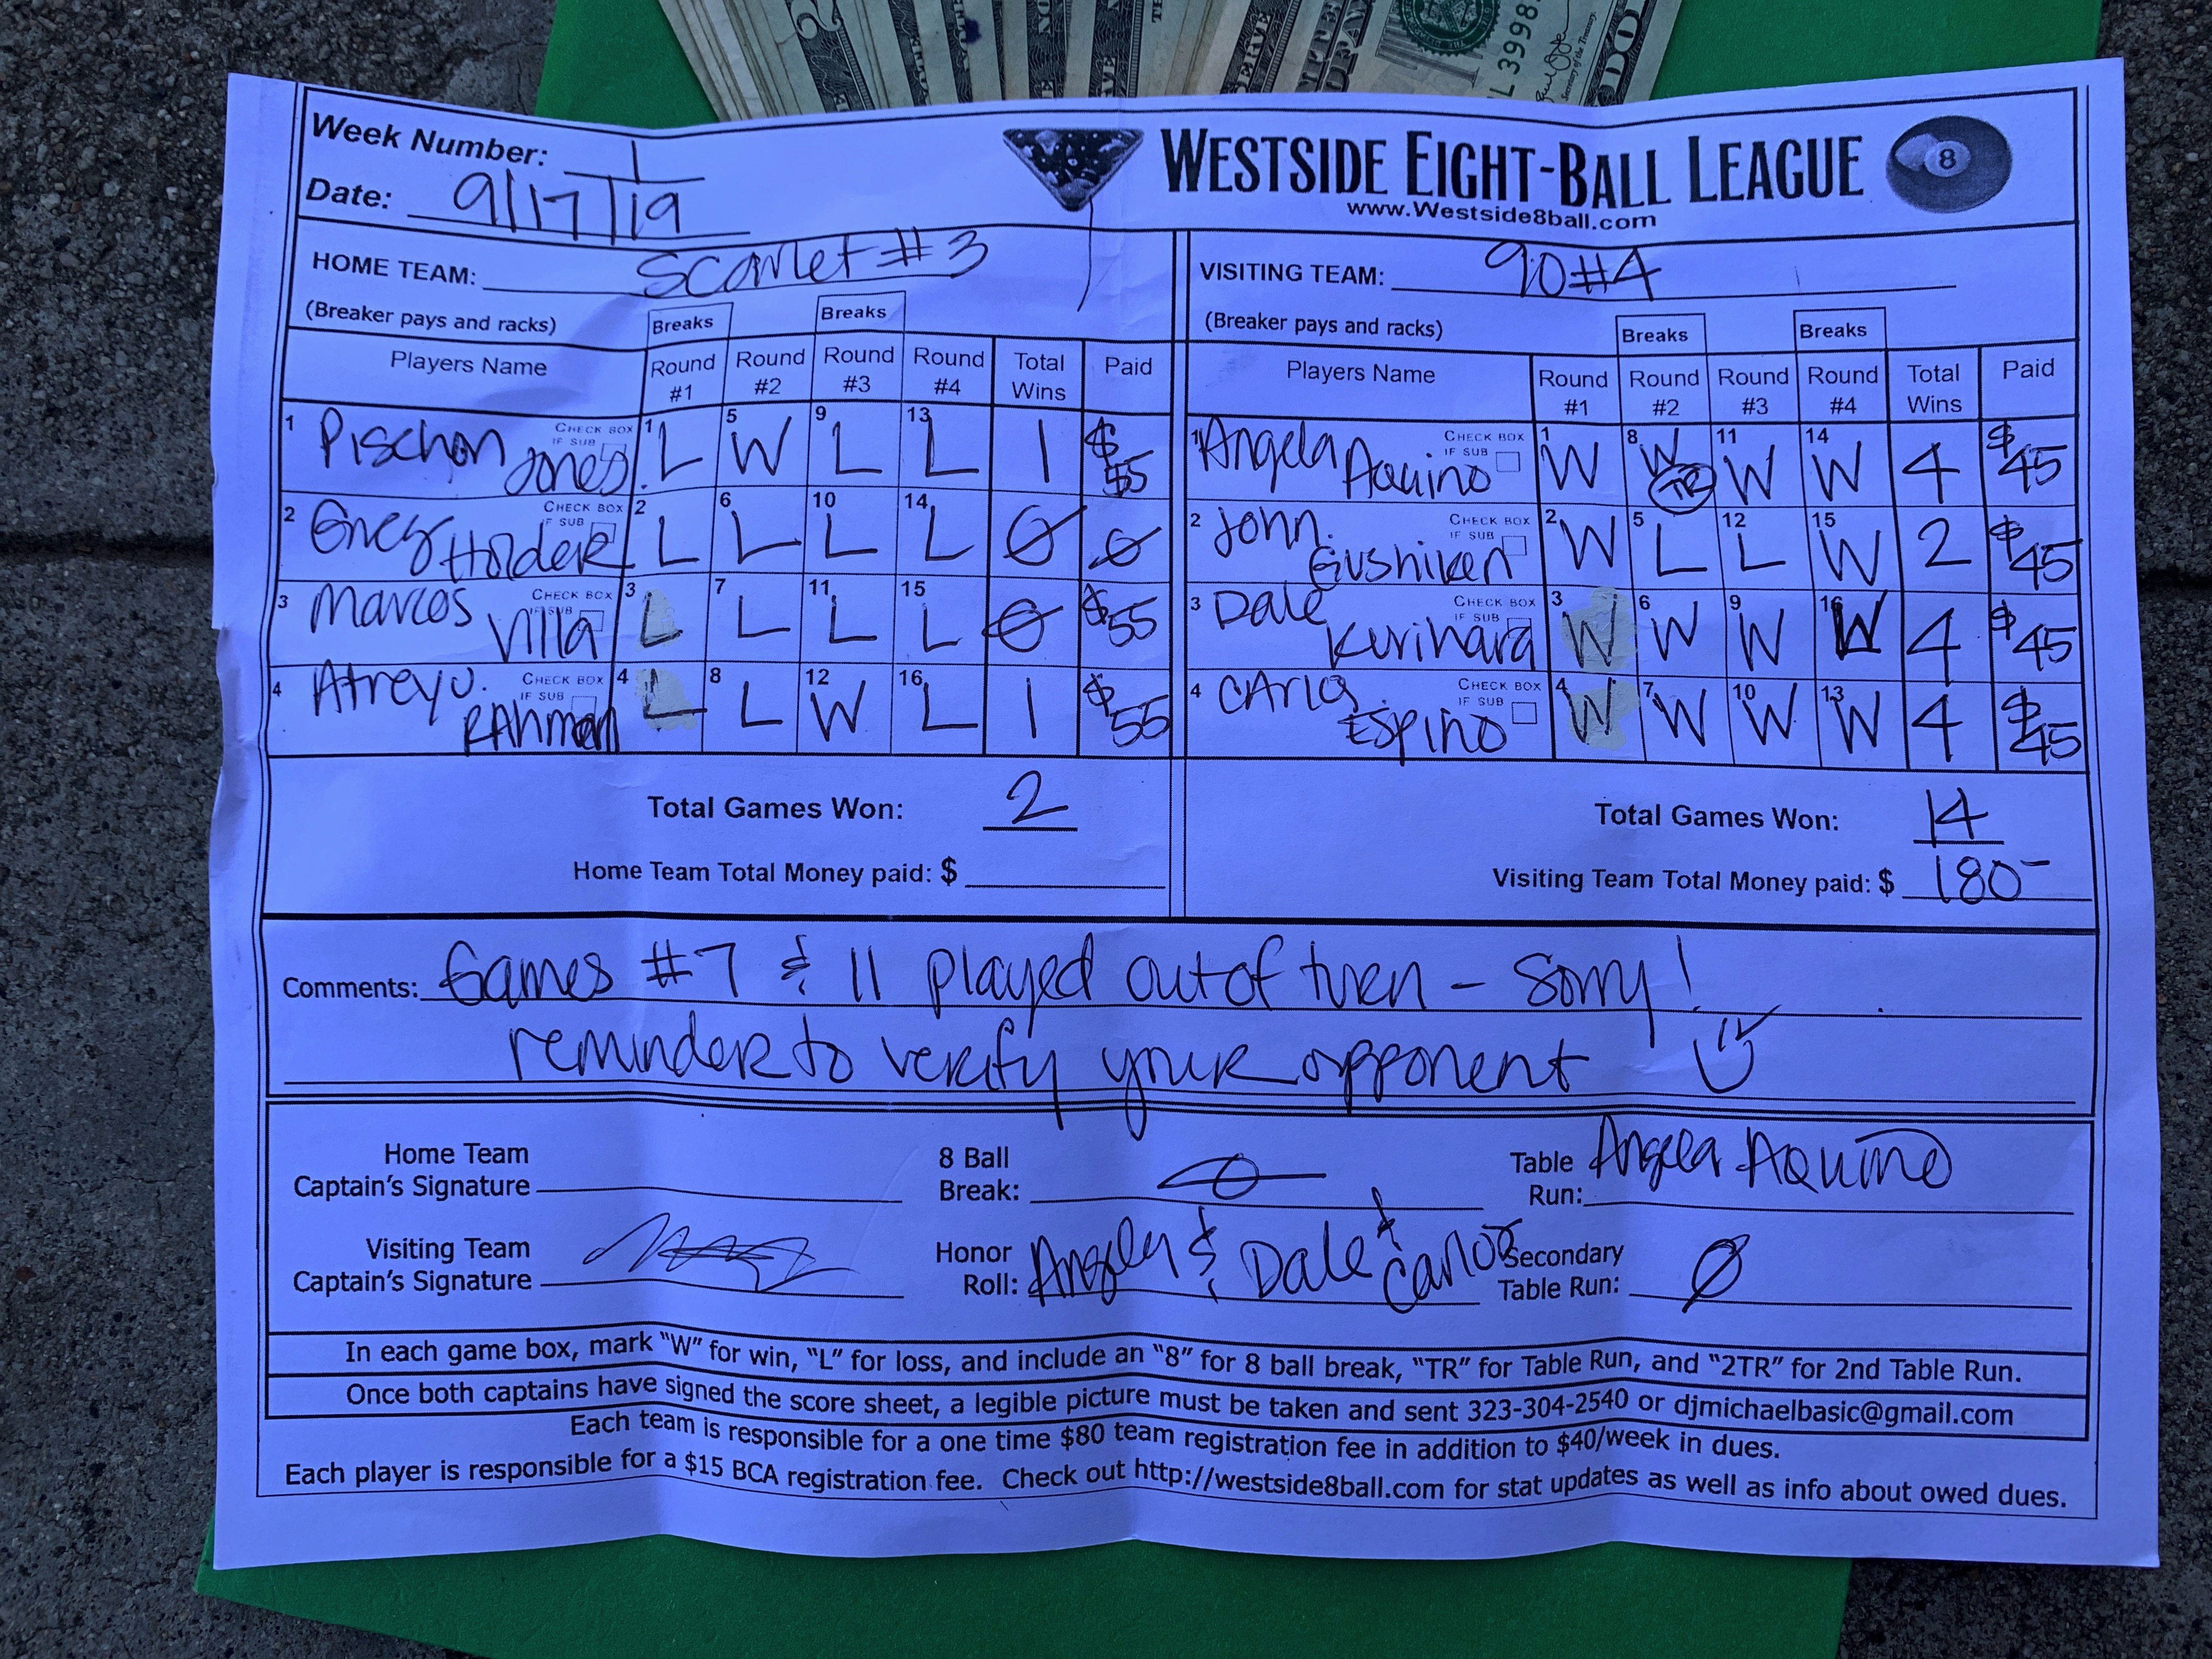 Week Number: 1
Date: 9/17/19
WESTSIDE EIGHT-BALL LEAGUE
www.Westside8ball.com
8
HOME TEAM: Scarlet #3
VISITING TEAM: 90 #4
(Breaker pays and racks) Breaks Breaks
(Breaker pays and racks) Breaks Breaks
Players Name Round #1 Round #2 Round #3 Round #4 Total Wins Paid
Players Name Round #1 Round #2 Round #3 Round #4 Total Wins Paid
1 Pischon Jones CHECK BOX IF SUB 1 L 5 W 9 L 13 L 1 $55
1 Angela Aquino CHECK BOX IF SUB 1 W 8 W TR 11 W 14 W 4 $45
2 Greg Holder CHECK BOX IF SUB 2 L 6 L 10 L 14 L 0 0
2 John Gushiken CHECK BOX IF SUB 2 W 5 L 12 L 15 W 2 $45
3 Marcos Villa CHECK BOX IF SUB 3 L 7 L 11 L 15 L 0 $55
3 Dale Kurihara CHECK BOX IF SUB 3 W 6 W 9 W 16 W 4 $45
4 Atreyu RAhman CHECK BOX IF SUB 4 L 8 L 12 W 16 L 1 $55
4 CArlos Espino CHECK BOX IF SUB 4 W 7 W 10 W 13 W 4 $45
Total Games Won: 2
Total Games Won: 14
Home Team Total Money paid: $
Visiting Team Total Money paid: $ 180-
Comments: Games #7 & 11 played out of turn - Sorry!
reminder to verify your opponent
Home Team Captain's Signature
8 Ball Break: 0
Table Run: Angela Aquino
Visiting Team Captain's Signature
Honor Roll: Angela & Dale & Carlos
Secondary Table Run: 0
In each game box, mark "W" for win, "L" for loss, and include an "8" for 8 ball break, "TR" for Table Run, and "2TR" for 2nd Table Run.
Once both captains have signed the score sheet, a legible picture must be taken and sent 323-304-2540 or djmichaelbasic@gmail.com
Each team is responsible for a one time $80 team registration fee in addition to $40/week in dues.
Each player is responsible for a $15 BCA registration fee. Check out http://westside8ball.com for stat updates as well as info about owed dues.